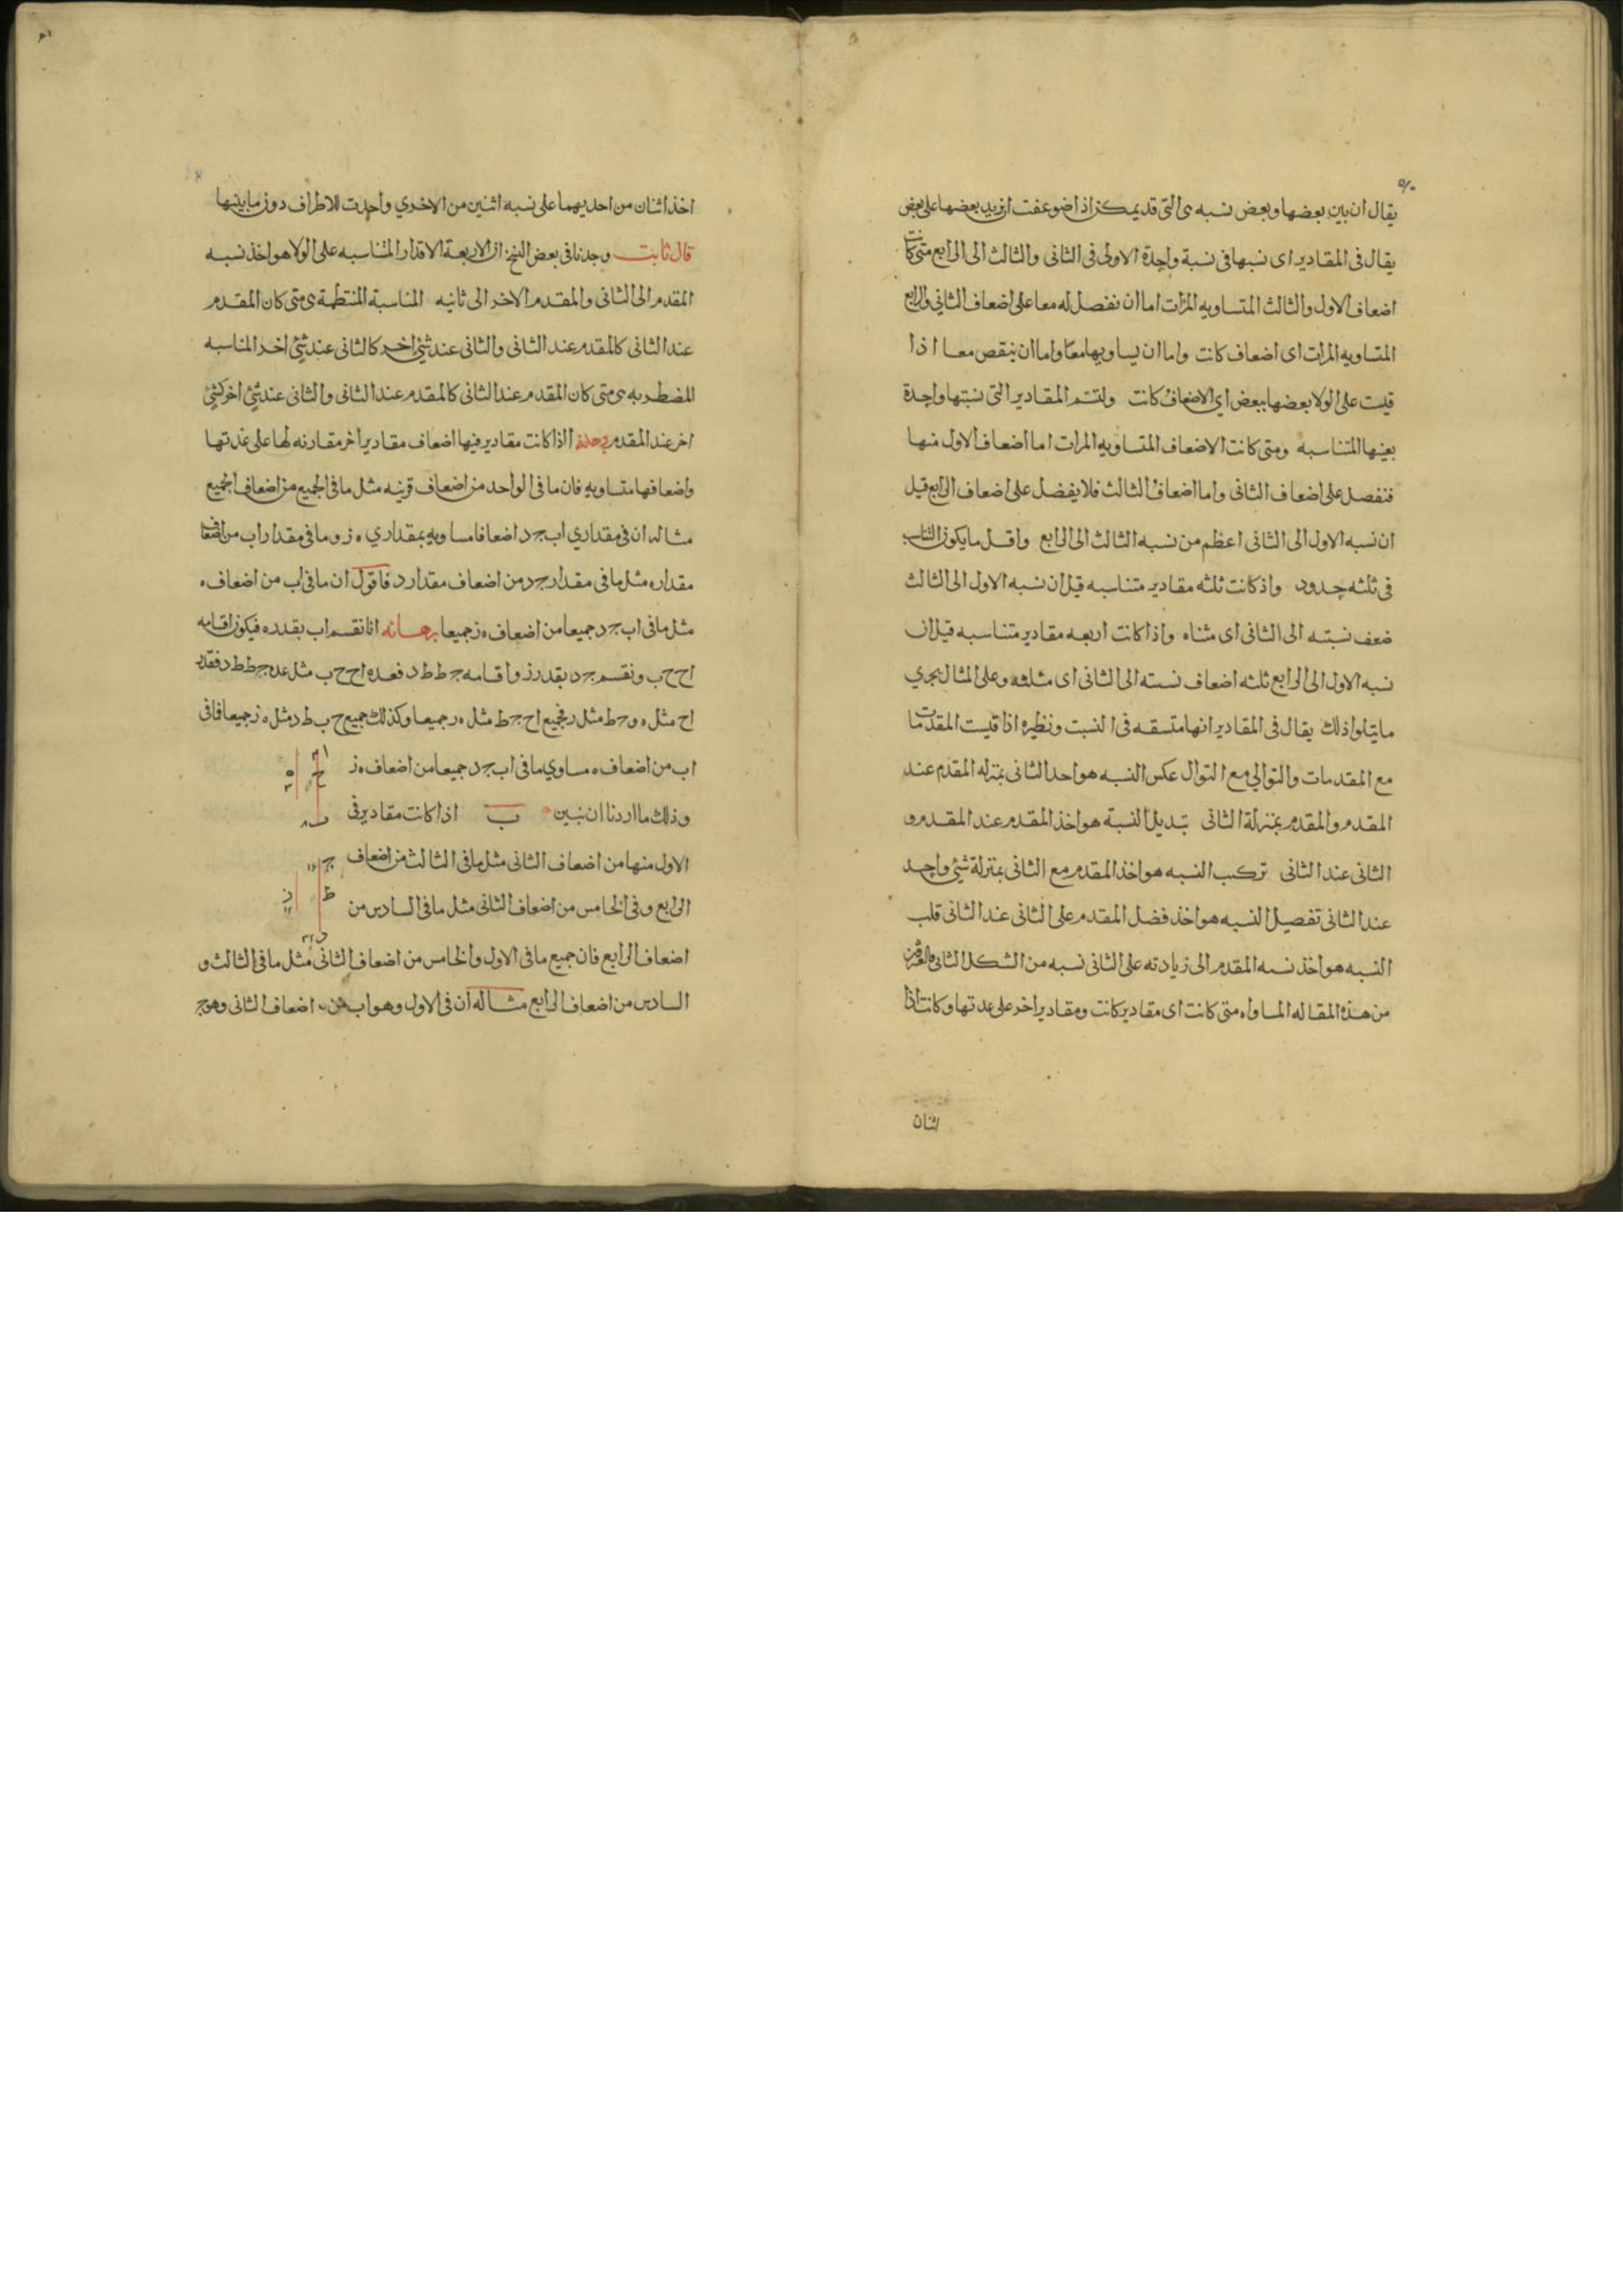 يقال ان بين بعضها وبعض نسبه هى التى قد يمكن اذا ضوعفت ان يزيد بعضها على بعض
يقال فى المقادير اى نسبها فى نسبة واحدة الاولى فى الثانى والثالث الى الرابع متى كانت
اضعاف الاول والثالث المتساويه المرات اما ان تفضل له معا على اضعاف الثانى والرابع
المتساويه المرات اى اضعاف كانت واما ان يساويها معا واما ان ينقص معا اذا
قيست على الولا بعضها ببعض اي الاضعاف كانت ولتسم المقادير التى نسبتها واحدة
بعينها المتناسبه ومتى كانت الاضعاف المتساويه المرات اما اضعاف الاول منها
فتفضل على اضعاف الثانى واما اضعاف الثالث فلا يفضل على اضعاف الرابع قيل
ان نسبه الاول الى الثانى اعظم من نسبه الثالث الى الرابع واقل ما يكون التناسب
فى ثلثه حدود واذ كانت ثلثه مقادير متناسبه قيل ان نسبه الاول الى الثالث
ضعف نسبته الى الثانى اى مثناه واذا كانت اربعه مقادير متناسبه قيل ان
نسبه الاول الى الرابع ثلثه اضعاف نسبته الى الثانى اى مثلثه وعلى المثال يجري
ما يتلوا ذلك يقال فى المقادير انها متسقه فى النسبت ونظيره اذا قيست المقدمات
مع المقدمات والتوالي مع التوال عكس النسبه هو اخذ الثانى بمنزله المقدم عند
المقدم والمقدم بمنزلة الثانى تبديل النسبة هو اخذ المقدم عند المقدم و
الثانى عند الثانى تركيب النسبه هو اخذ المقدم مع الثانى بمنزلة شئ واحد
عند الثانى تفصيل النسبه هو اخذ فضل المقدم على الثانى عند الثانى قلب
النسبه هو اخذ نسبه المقدم الى زيادته على الثانى نسبه من الشكل الثانى والعشرين
من هذه المقاله المساواه متى كانت اى مقادير كانت ومقادير اخر على عدتها وكانت اذا
اثنان
اخذ اثنان من احديهما على نسبه اثنين من الاخري واخذت للاطراف دون ما بينها
قال ثابت وجدنا فى بعض النسخ ان الاربعة الاقدار المتناسبه على الولا هو اخذ نسبه
المقدم الى الثانى والمقدم الاخر الى ثانيه المناسبة المنتظمة هى متى كان المقدم
عند الثانى كالمقدم عند الثانى والثانى عند شئ اخر كالثانى عند شئ اخر المناسبه
المضطربه هى متى كان المقدم عند الثانى كالمقدم عند الثانى والثانى عند شئ اخر كشئ
اخر عند المقدم ا اذا كانت مقادير فيها اضعاف مقادير اخر مقارنه لها على عدتها
واضعافها متساويه فان ما فى الواحد من اضعاف قرينه مثل ما فى الجميع من اضعاف الجميع
مثاله ان فى مقداري اب جد اضعافا مساويه بمقداري ه ز وما فى مقدار اب من اضعاف
مقداره مثل ما فى مقدار جد من اضعاف مقدار د فاقول ان ما فى اب من اضعاف ه
مثل ما فى اب جد جميعا من اضعاف ه ز جميعا برهانه انا نقسم اب بقدر ه فيكون اقسامه
اح ح ب ونقسم جد بقدر ز واقسامه جط ط د فعده اح ح ب مثل عده جط ط د فقدر
اح مثل ه وجط مثل ر فجميع اح جط مثل ه ر جميعا وكذلك جميع ح ب ط د مثل ه ز جميعا فما فى
اب من اضعاف ه مساوي ما فى اب جد جميعا من اضعاف ه ز
وذلك ما اردنا ان نبين ب اذا كانت مقادير فى
الاول منها من اضعاف الثانى مثل ما فى الثالث من اضعاف
الرابع وفى الخامس من اضعاف الثانى مثل ما فى السادس من
اضعاف الرابع فان جميع ما فى الاول والخامس من اضعاف الثانى مثل ما فى الثالث و
السادس من اضعاف الرابع مثاله ان فى الاول وهو اب من اضعاف الثانى وهو ج